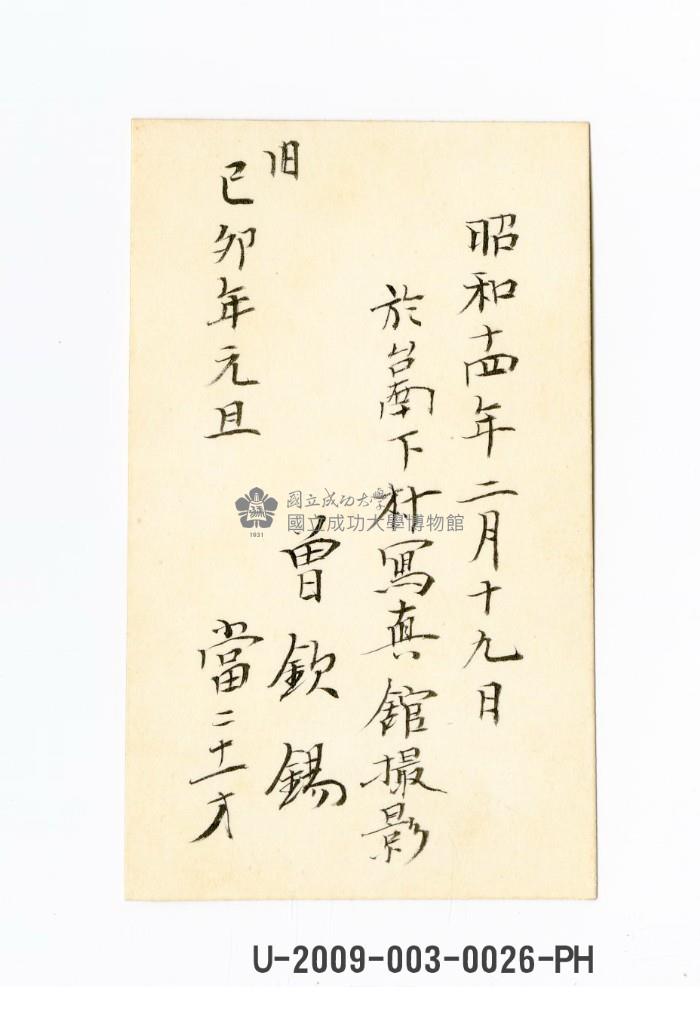 昭和十四年二月十九日
於台南下村冩真舘撮影
旧
己卯年元旦
曾欽錫
當二十一才
國立成功大學
國立成功大學博物館
1931
U-2009-003-0026-PH